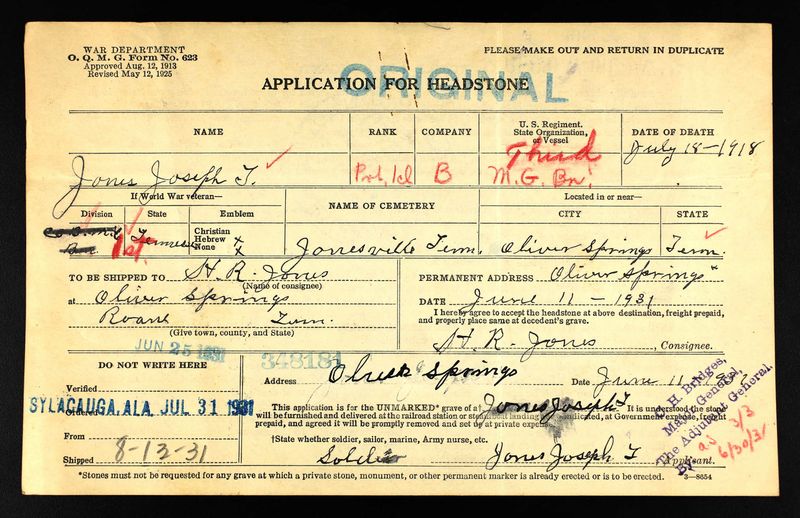 WAR DEPARTMENT
O. Q. M. G. Form No. 623
Approved Aug. 12, 1913
Revised May 12, 1925
PLEASE MAKE OUT AND RETURN IN DUPLICATE
ORIGINAL
APPLICATION FOR HEADSTONE
NAME
RANK
COMPANY
U. S. Regiment.
State Organization,
or Vessel
DATE OF DEATH
Jones Joseph T.
Pvt, 1cl
B
Third
M. G. Bn.
July 18-1918
If World War veteran—
Division
State
Emblem
NAME OF CEMETERY
Located in or near—
CITY
STATE
1st.
Tennessee
Christian
Hebrew x
None x
Jonesville Tenn.
Oliver Springs
Tenn.
TO BE SHIPPED TO H. R. Jones
(Name of consignee)
at Oliver Springs
Roane Tenn.
(Give town, county, and State)
PERMANENT ADDRESS Oliver Springs
DATE June 11 - 1931
I hereby agree to accept the headstone at above destination, freight prepaid,
and properly place same at decedent's grave.
H. R. Jones, Consignee.
JUN 25 1931
348181
DO NOT WRITE HERE
Verified
SYLACAUGA, ALA. JUL 31 1931
Ordered
From
Shipped 8-12-31
Address Oliver Springs Date June 11
This application is for the UNMARKED* grave of Jones Joseph T It is understood the stone
will be furnished and delivered at the railroad station or steamboat landing indicated, at Government expense, freight
prepaid, and agreed it will be promptly removed and set up at private expense.
†State whether soldier, sailor, marine, Army nurse, etc.
Soldier
Jones Joseph T
Applicant.
C. H. Bridges,
Major General,
The Adjutant General.
By
6/30/31
*Stones must not be requested for any grave at which a private stone, monument, or other permanent marker is already erected or is to be erected. 3—8654